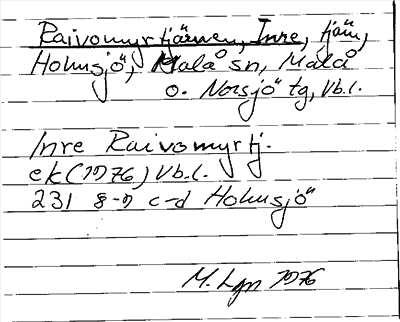 Raivomyrtjärnen, Inre, tjärn,
Holmsjö, Malå sn, Malå
o. Norsjö tg, Vb.l.
Inre Raivomyrtj.
ek (1976) Vb.l.
231 8-9 c-d Holmsjö
M. Lgn 1976